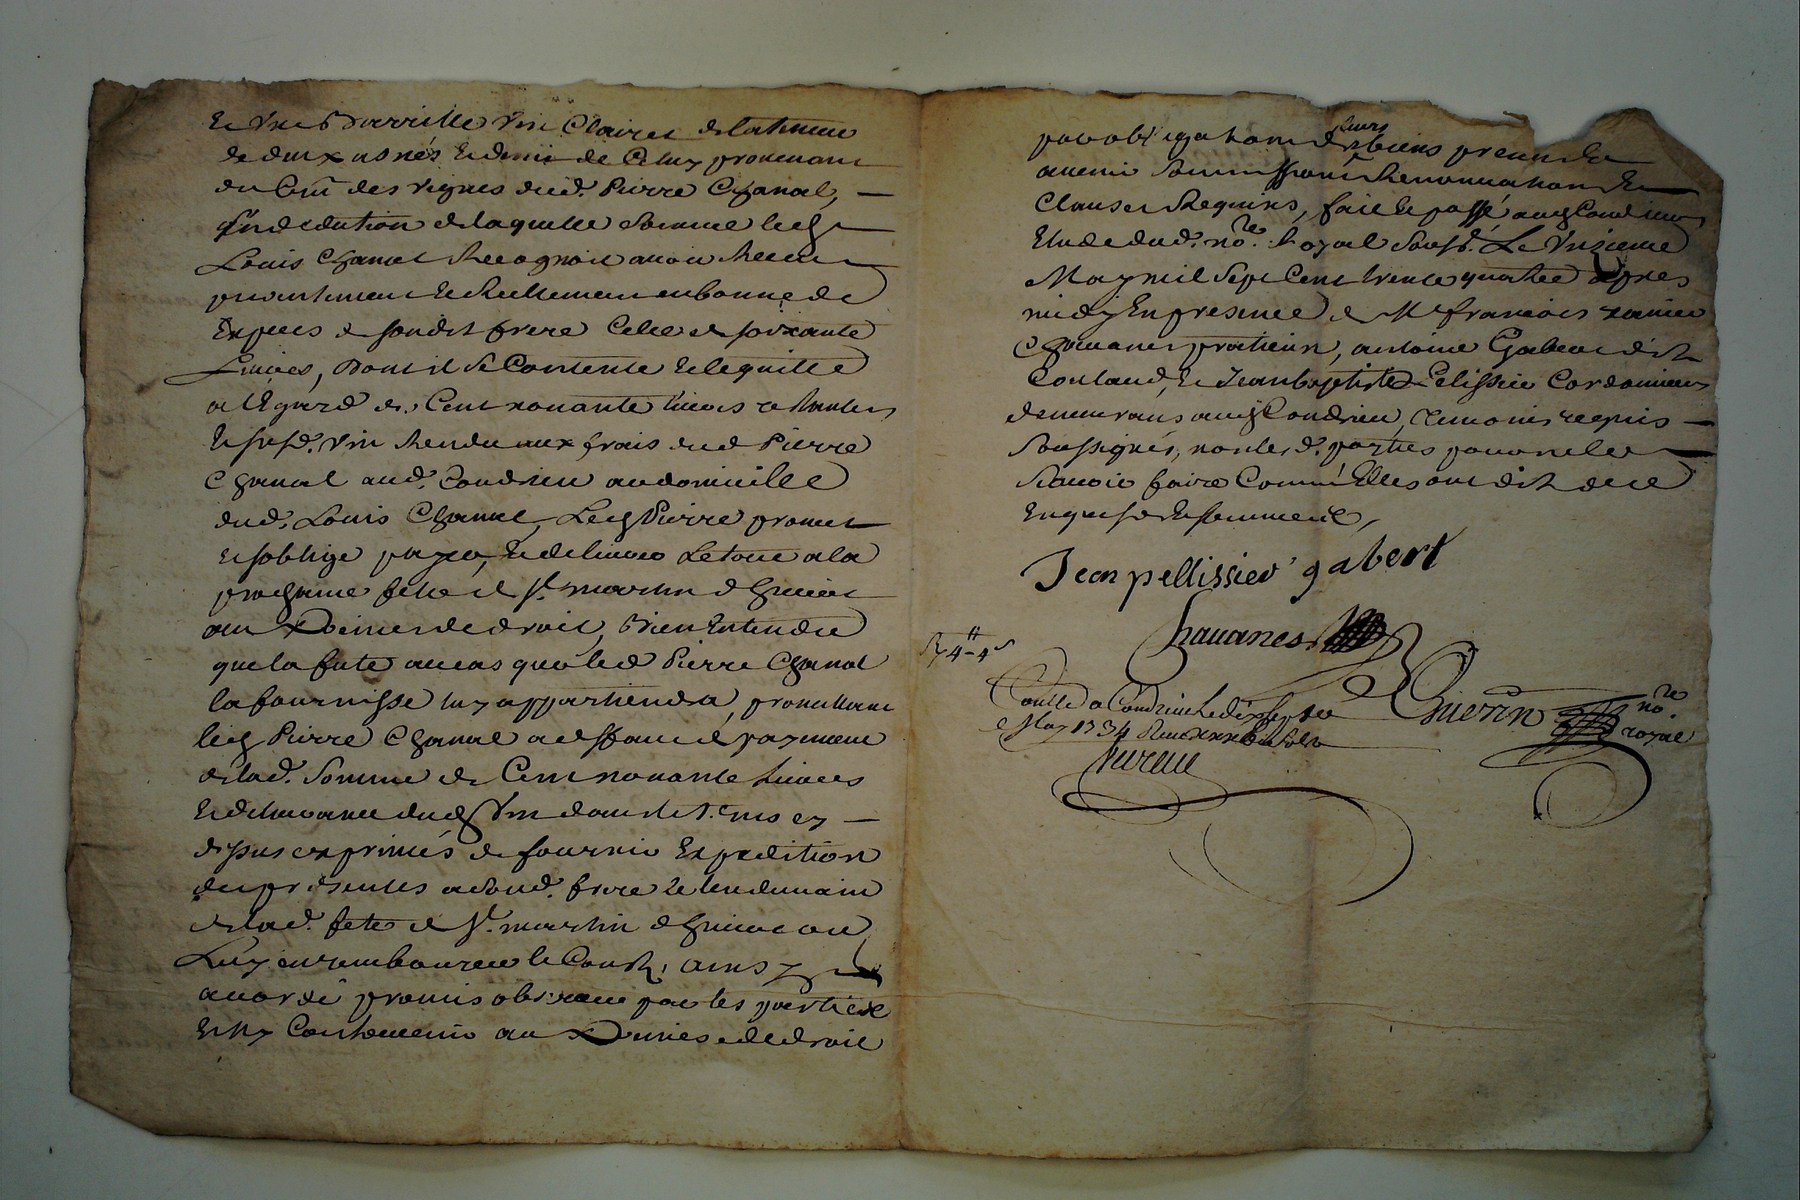 Et Une Barrille Vin Clairet de la teneur
de deux asnés Et demi de Celuy provenant
du Crû des vignes dud. Pierre Chanal,
En dedution de laquelle Somme led.
Louis Chanal Recognoit avoir Receu
presentement et Reellement en bonnes
Especes de sondit frere Celle de soixante
Livres, Dont il Se Contente Et le quitte
a l'Egard des Cent nonante livres restantes
Et susd. Vin Rendu aux frais dud Pierre
Chanal aud. Condrieu au domicille
dud. Louis Chanal, Led Pierre promet
et soblige payer, Et delivrer Le tout a la
prochaine fete de St. martin d'hiver
aux Peines de droit, Bien Entendu
que la fute au cas que led Pierre Chanal
la fournisse luy appartiendra, promettant
led Pierre Chanal a deffaut de payement
de lad. Somme de Cent nonante Livres
Et delivrance dud Vin dans le tems cy
dessus exprimés de fournir Expedition
des presentes a sond. frere le lendemain
de lad. fete de St. martin d'hiver ou
Luy en rembourcer le Coust, ainsy
acordé promis observer par les parties
Et ny Contrevenir aux Peines de droit
par obligation de leurs biens presents
avenir Soumissions Renonciation Et
Clauses Requises, fait et passé aud Condrieu
Etude dud. no.re Royal Souss. Le Unzieme
May mil Sept Cent trente quatre apres
midy En presence de Mr françois
Chavanes praticien, antoine Gabert dit
Coutaud, Et Jean baptiste Pelissier Cordonnier
demeurans aud Condrieu, temoins requis
Soussignés, non les d. parties pour ne le
Scavoir faire Comm'Elles ont dit de ce
Enquises Et sommees,
Jean pellissier gabert
Chavanes
4-4s
Guerin no.re royal
Conllé a Condrieu Le dix sept
May 1734 Receu